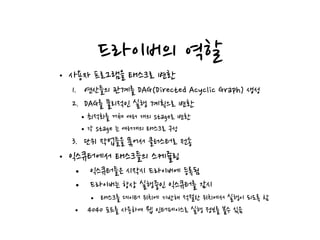 드라이버의 역할
• 사용자 프로그램을 태스크로 변환
1. 연산들의 관계를 DAG(Directed Acyclic Graph) 생성
2. DAG를 물리적인 실행 계획으로 변환
• 최적화를 거쳐 여러 개의 stage로 변환
• 각 stage 는 여러개의 태스크로 구성
3. 단위 작업들을 묶어서 클러스터로 전송
• 익스큐터에서 태스크들의 스케줄링
• 익스큐터들은 시작시 드라이버에 등록됨
• 드라이버는 항상 실행중인 익스큐터를 감시
• 태스크를 데이터 위치에 기반해 적절한 위치에서 실행이 되도록 함
• 4040 포트를 사용하여 웹 인터페이스로 실행 정보를 볼수 있음